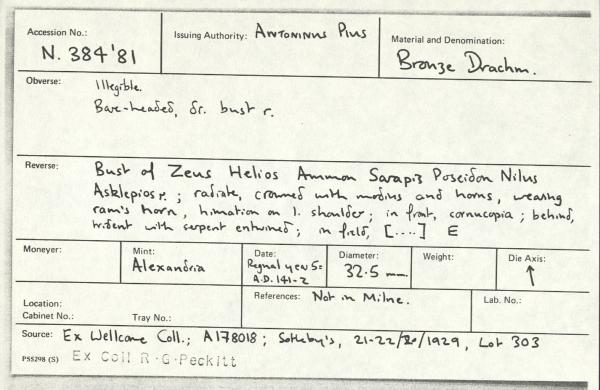 Accession No.: Issuing Authority: Antoninus Pius Material and Denomination:
N. 384'81 Bronze Drachm.
Obverse: Illegible.
Bare-headed, dr. bust r.
Reverse: Bust of Zeus Helios Ammon Sarapis Poseidon Nilus
Asklepios r.; radiate, crowned with modius and horns, wearing
ram's horn, himation on l. shoulder; in front, cornucopia; behind,
trident with serpent entwined; in field, [....] E
Moneyer: Mint: Date: Diameter: Weight: Die Axis:
Alexandria Regnal year 5= 32.5 mm. ↑
A.D. 141-2
Location: References: Not in Milne. Lab. No.:
Cabinet No.: Tray No.:
Source: Ex Wellcome Coll.; A178018; Sotheby's, 21-22/ /1929, Lot 303
PS5298 (S) Ex Coll R.G.Peckitt